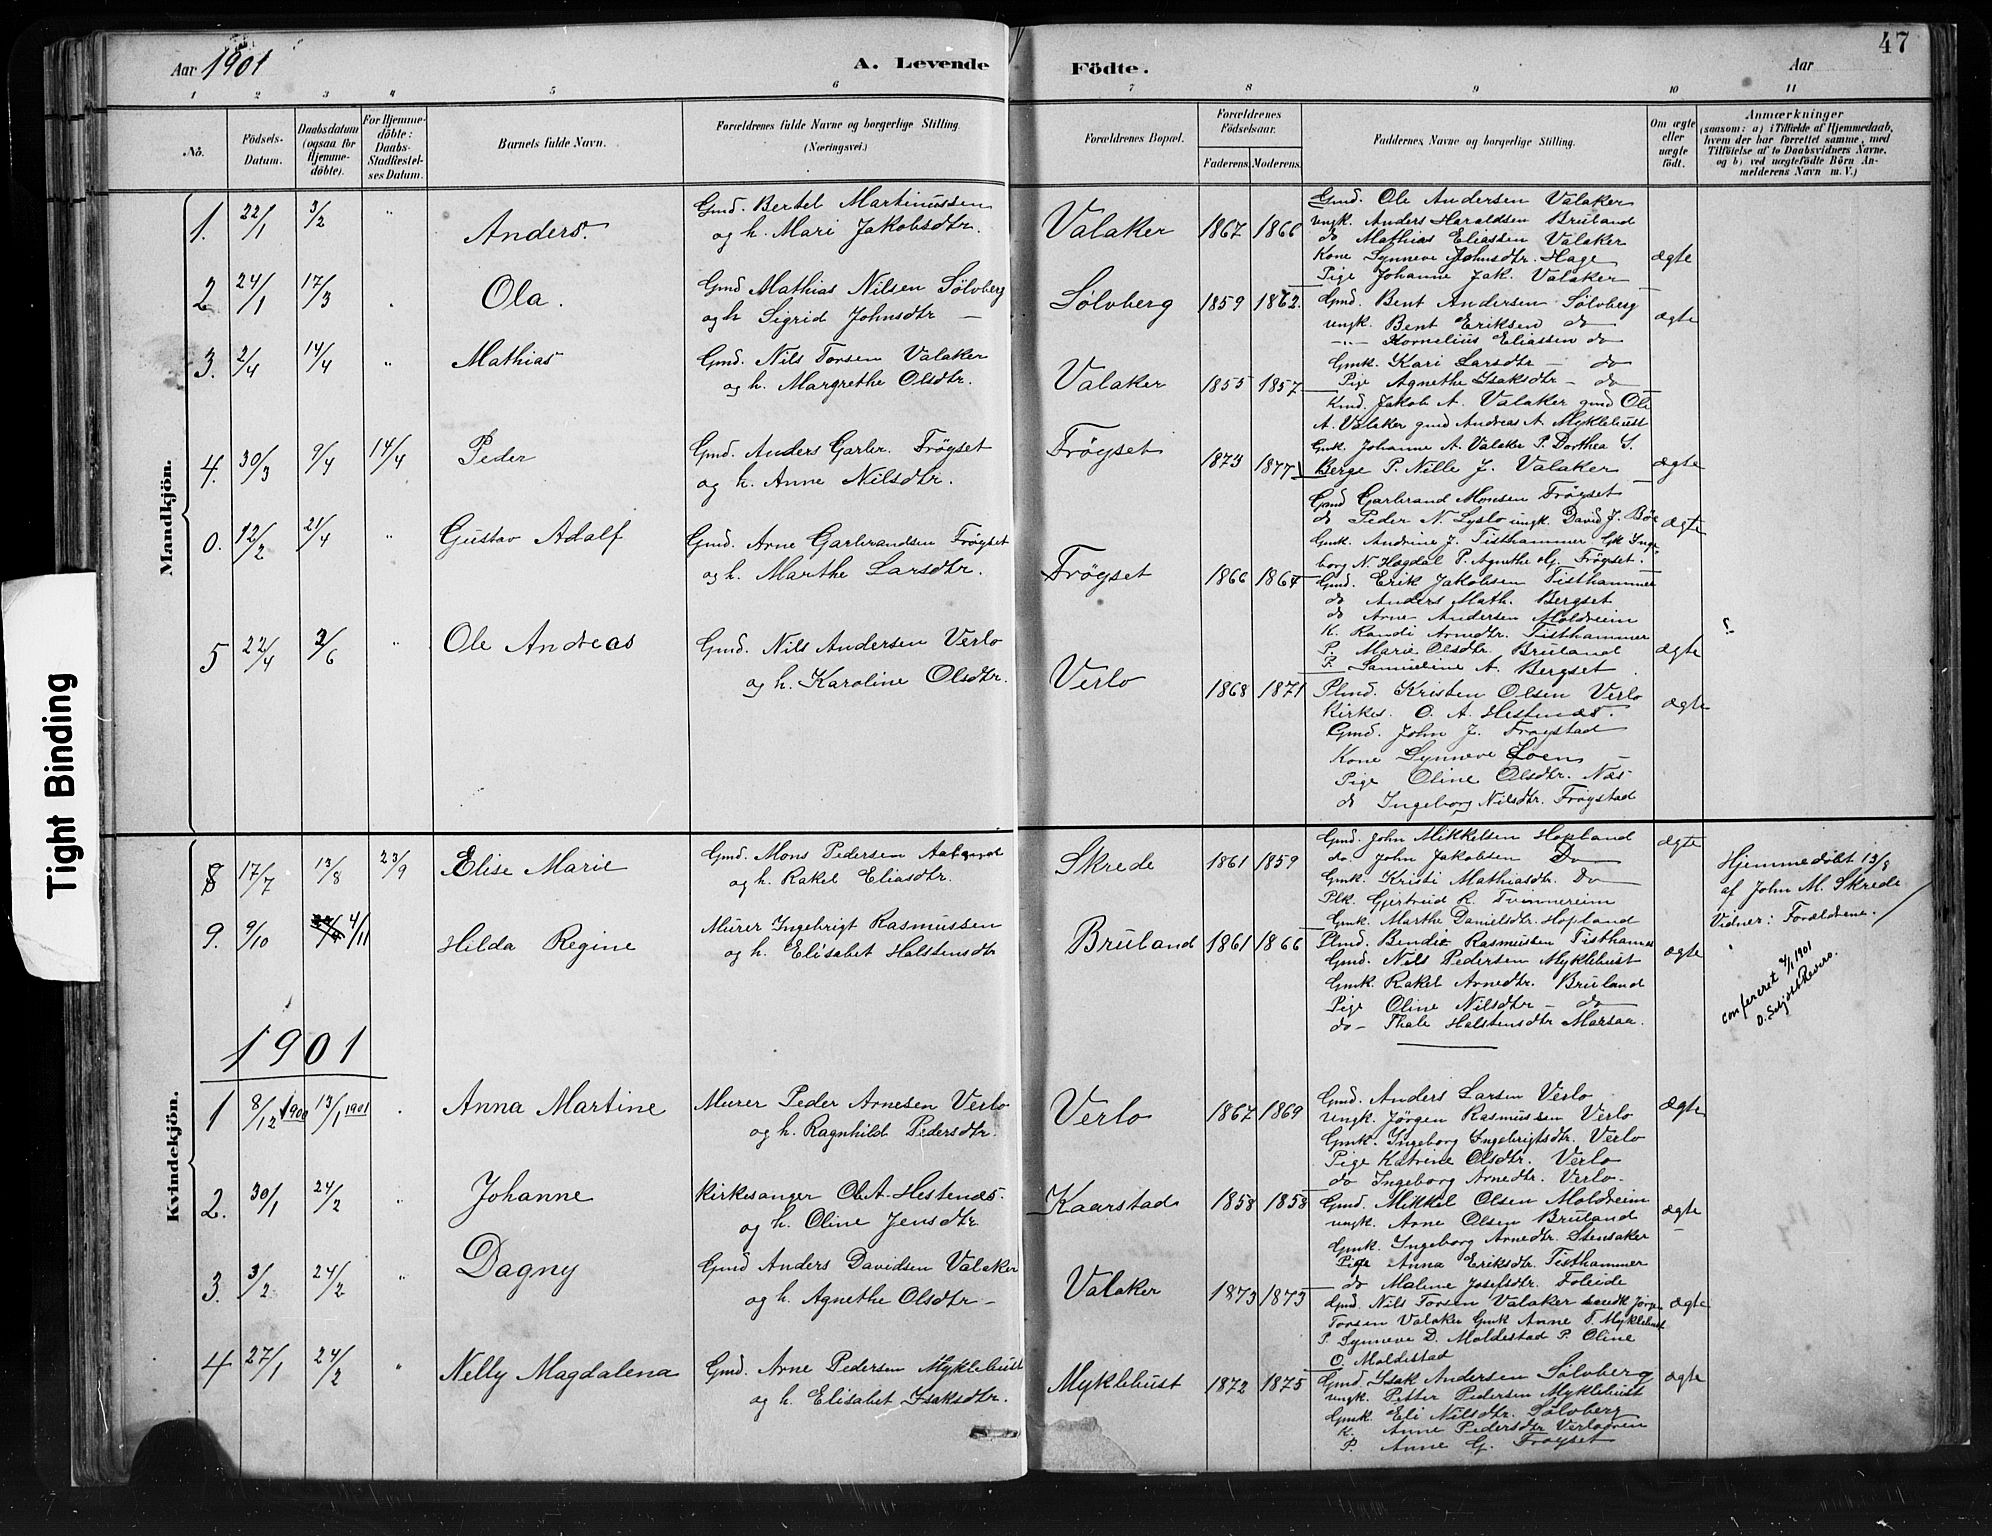 47
Aar 1901
A. Levende Födte.
Aar
1 2 3 4 5 6 7 8 9 10 11
No.
Födsels-Datum.
Daabsdatum (ogsaa for Hjemmedöbte).
For Hjemmedöbte: Daabs-Stadfæstelses Datum.
Barnets fulde Navn.
Forældrenes fulde Navne og borgerlige Stilling.
(Næringsvei.)
Forældrenes Bopæl.
Forældrenes Födselsaar.
Faderens. Moderens.
Faddernes Navne og borgerlige Stilling.
Om ægte eller uægte födt.
Anmærkninger
(saasom: a) i Tilfælde af Hjemmedaab, hvem der har forrettet samme, med Tilföielse af to Daabsvidners Navne, og b) ved uægtefödte Börn Anmelderens Navn m. V.)
Mandkjön.
1. 22/1 3/2 " Anders.
Gmd. Bertel Martinussen
og h. Mari Jakobsdtr.
Valaker 1867 1866
Gmd. Ole Andersen Valaker
ungk. Anders Haraldsen Bruland
do Mathias Eliassen Valaker
Kone Synneve Johnsdtr. Hage
Pige Johanne Jak. Valaker
ægte
2 24/1 17/3 " Ola.
Gmd Mathias Nilsen Sølvberg
og h Sigrid Johnsdtr —
Sølvberg 1859 1862.
Gmd. Bent Andersen Sølvberg
ungk. Bent Eriksen do
-"- Kornelius Eliassen do
Gmk. Kari Larsdtr — do
Pige Agnethe Isaksdtr — do
ægte
3. 2/4 14/4 " Mathias
Gmd. Nils Torsen Valaker
og h. Margrethe Olsdtr.
Valaker 1855 1857
Kmd. Jakob A. Valaker gmd Ole
A. Valaker gmd Andreas A Myklebust
Gmk. Johanne A. Valaker P. Dorthea S.
Berge P. Nille J. Valaker
ægte
4. 30/3 9/4 14/4 Peder
Gmd. Anders Garbr. Frøyset
og h. Anne Nilsdtr.
Frøyset 1873 1877
Gmd Garbrand Monsen Frøyset
do Peder N. Lyslo ungk. David J. Bøe
Gmk. Andrine J. Tisthammer Gk Inge-
borg N. Hagdal P. Agnethe Frøyset.
ægte
0. 12/2 21/4 " Gustav Adalf
Gmd. Arne Garbrandsen Frøyset
og h. Marthe Larsdtr.
Frøyset 1866 1864
Gmd. Erik Jakobsen Tisthammer
do Anders Math. Bergset
do Arne Andersen Moldreim
K. Randi Arnedtr. Tisthammer
P. Marie Olsdtr. Bruland
P. Samueline A. Bergset
ægte
5 22/4 3/6 " Ole Andreas
Gmd. Nils Andersen Verlo
og h. Karoline Olsdtr.
Verlo 1868 1871
Plmd. Kristen Olsen Verlo
Kirkes. O. A. Hestenæs.
Gmd. John J. Frøystad
Kone Synneve Loen —
Pige Oline Olsdtr. Næs
do Ingeborg Nilsdtr. Frøystad
ægte
Kvindekjön.
8 17/7 13/8 23/9 Elise Marie
Gmd. Mons Pedersen
og h. Rakel Eliasdtr.
Skrede 1861 1859
Gmd. John Mikkelsen Hopland
do. John Jakobsen Do
Gmk. Kristi Mathiasdtr. Do
Plk. Gjertrud R. Tvinnereim
Gmk. Marthe Danielsdtr. Hopland
ægte
Hjemmedøbt 13/8
af John M. Skrede
Vidner: Forældrene.
9. 9/10 4/11 Hilda Regine
Murer Ingebrigt Rasmussen
og h. Elisabet Halstensdtr
Bruland 1861 1866
Plmd. Bendik Rasmussen Tisthammer
Gmd. Nils Pedersen Myklebust
Gmk. Rakel Arnedtr. Bruland
Pige Oline Nilsdtr — do
do — Thale Halstensdtr Marsaa.
ægte
confereret 4/1 1901
1901
1 8/12 1900 13/1 1901 Anna Martine
Murer Peder Arnesen Verlo
og h. Ragnhild Pedersdtr.
Verlo 1867 1869
Gmd. Anders Larsen Verlo
ungk. Jörgen Rasmussen Verlo
Gmk. Ingeborg Ingebrigtsdtr. Verlo
Pige Katrine Olsdtr. Verlo
do Ingeborg Arnedtr. Verlo.
ægte
2. 30/1 24/2 " Johanne
Kirkesanger O. A. Hestenæs.
og h. Oline Jensdtr
Kaarstad 1858 1858
Gmd. Mikkel Olsen Moldreim
ungk. Arne Olsen Bruland
Gmk. Ingeborg Arnedtr. Stensaker
Pige Anna Eriksdtr. Tisthammer
do Maline Josefsdtr. Foleide
ægte
3. 3/2 24/2 " Dagny
Gmd Anders Davidsen Valaker
og h. Agnethe Olsdtr —
Valaker 1873 1873
Gmd. Nils Torsen Valaker
Torsen Valaker Gmk Anne T. Myklebust
P. Synneve D. Moldestad P. Oline
O. Moldestad
ægte
4 27/1 24/2 " Nelly Magdalena
Gmd. Arne Pedersen Myklebust
og h. Elisabet Isaksdtr.
Myklebust 1872 1875
Gmd. Isak Andersen Sølvberg
ungk. Petter Pedersen Myklebust
Gmk. Eli Nilsdtr. Sølvberg
K. Anne Pedersdtr Verloøren
P. Anne G. Frøyset
ægte
Tight Binding